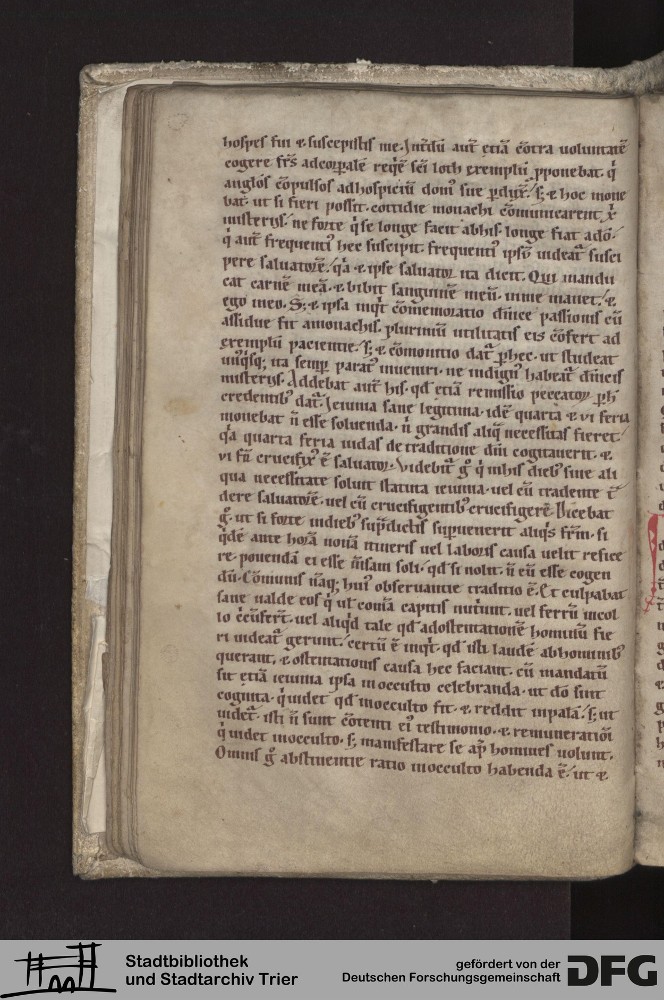 hospes fui & suscepistis me. Int̄dū aut̄ etiā cōtra uoluntatē
cogere frs̄ ad corpalē reqē sc̄i loth exemplū ꝓponebat. q̇
anglos cōpulsos ad hospiciū domꝰ sue ꝑduxᷓ. s; & hoc mone
bat. ut si fieri possit. cottidie monachi cōmunicarent xp̄i
misteriis. ne forte q̇ se longe facit ab his. longe fiat a dō.
q̇ aut̄ frequentiꝰ hec suscipit. frequentiꝰ ipsū uideat᷑ susci
pere saluatorē. q̇a & ipse saluator ita dicit. Qui mandu
cat carnē meā. & bibit sanguinē meū. in me manet. &
ego in eo. S; & ipsa inqt̄ cōmemoratio dn̄ice passionis cū
assidue fit a monachis. plurimū utilitatis eis cōfert ad
exemplū pacientie. s; & cōmonitio dat᷑ ꝑ hec. ut studeat
unq̇sq; ita semꝑ parat᷒ inueniri. ne indignꝰ habeat᷑ diuinis
misteriis. Addebat aut̄ his. qd̄ etiā remissio peccatoꝝ ꝑ h̄
credentibꝰ dat᷑. Ieiunia sane legitima. idē quarta & vi feria
monebat n̄ esse soluenda. n̄ grandis aliq̄ necessitas fieret.
q̇a quarta feria iudas de traditione dn̄i cogitauerit. &
vi fr̄ crucifixꝰ ē saluator. Videbit᷑ g̊ q̇ in his diebꝰ sine ali
qua necessitate soluit statuta ieiunia. uel cū tradente t̄
dere saluatorē. uel cū crucifigentibꝰ crucifigere. Dicebat
g̊. ut si forte in diebꝰ sup̄dictis supuenerit aliq̇s frm̄. si
q̇dē ante horā nonā itineris uel laboris causa uelit refice
re. ponendā ei esse m̄sam soli. qd̄ si nolit. n̄ eū esse cogen
dū. Cōmunis nāq; huiꝰ obseruantie traditio ē. Et culpabat
sane ualde eos q̇ ul̄ comā capitis nutriunt. uel ferrū in col
lo cc̄ūfert̄. uel aliqd̄ tale qd̄ ad ostentationē hominū fie
ri uideat᷑ gerunt. certū ē inqt̄. qd̄ isti laudē ab hominibꝰ
querant. & ostentationis causa hec faciant. cū mandatū
sit etiā ieiunia ipsa in occulto celebranda. ut dō sint
cognita. q̇ uidet qd̄ in occulto fit. & reddit in palā. s; ut
uidet᷑. isti n̄ sunt cōtenti eiꝰ testimonio. & remuneratiōi
q̇ uidet in occulto. s; manifestare se ap̄ homines uolunt.
Omnis g̊ abstinentie ratio in occulto habenda ē. ut &
Stadtbibliothek
und Stadtarchiv Trier
gefördert von der
Deutschen Forschungsgemeinschaft
DFG